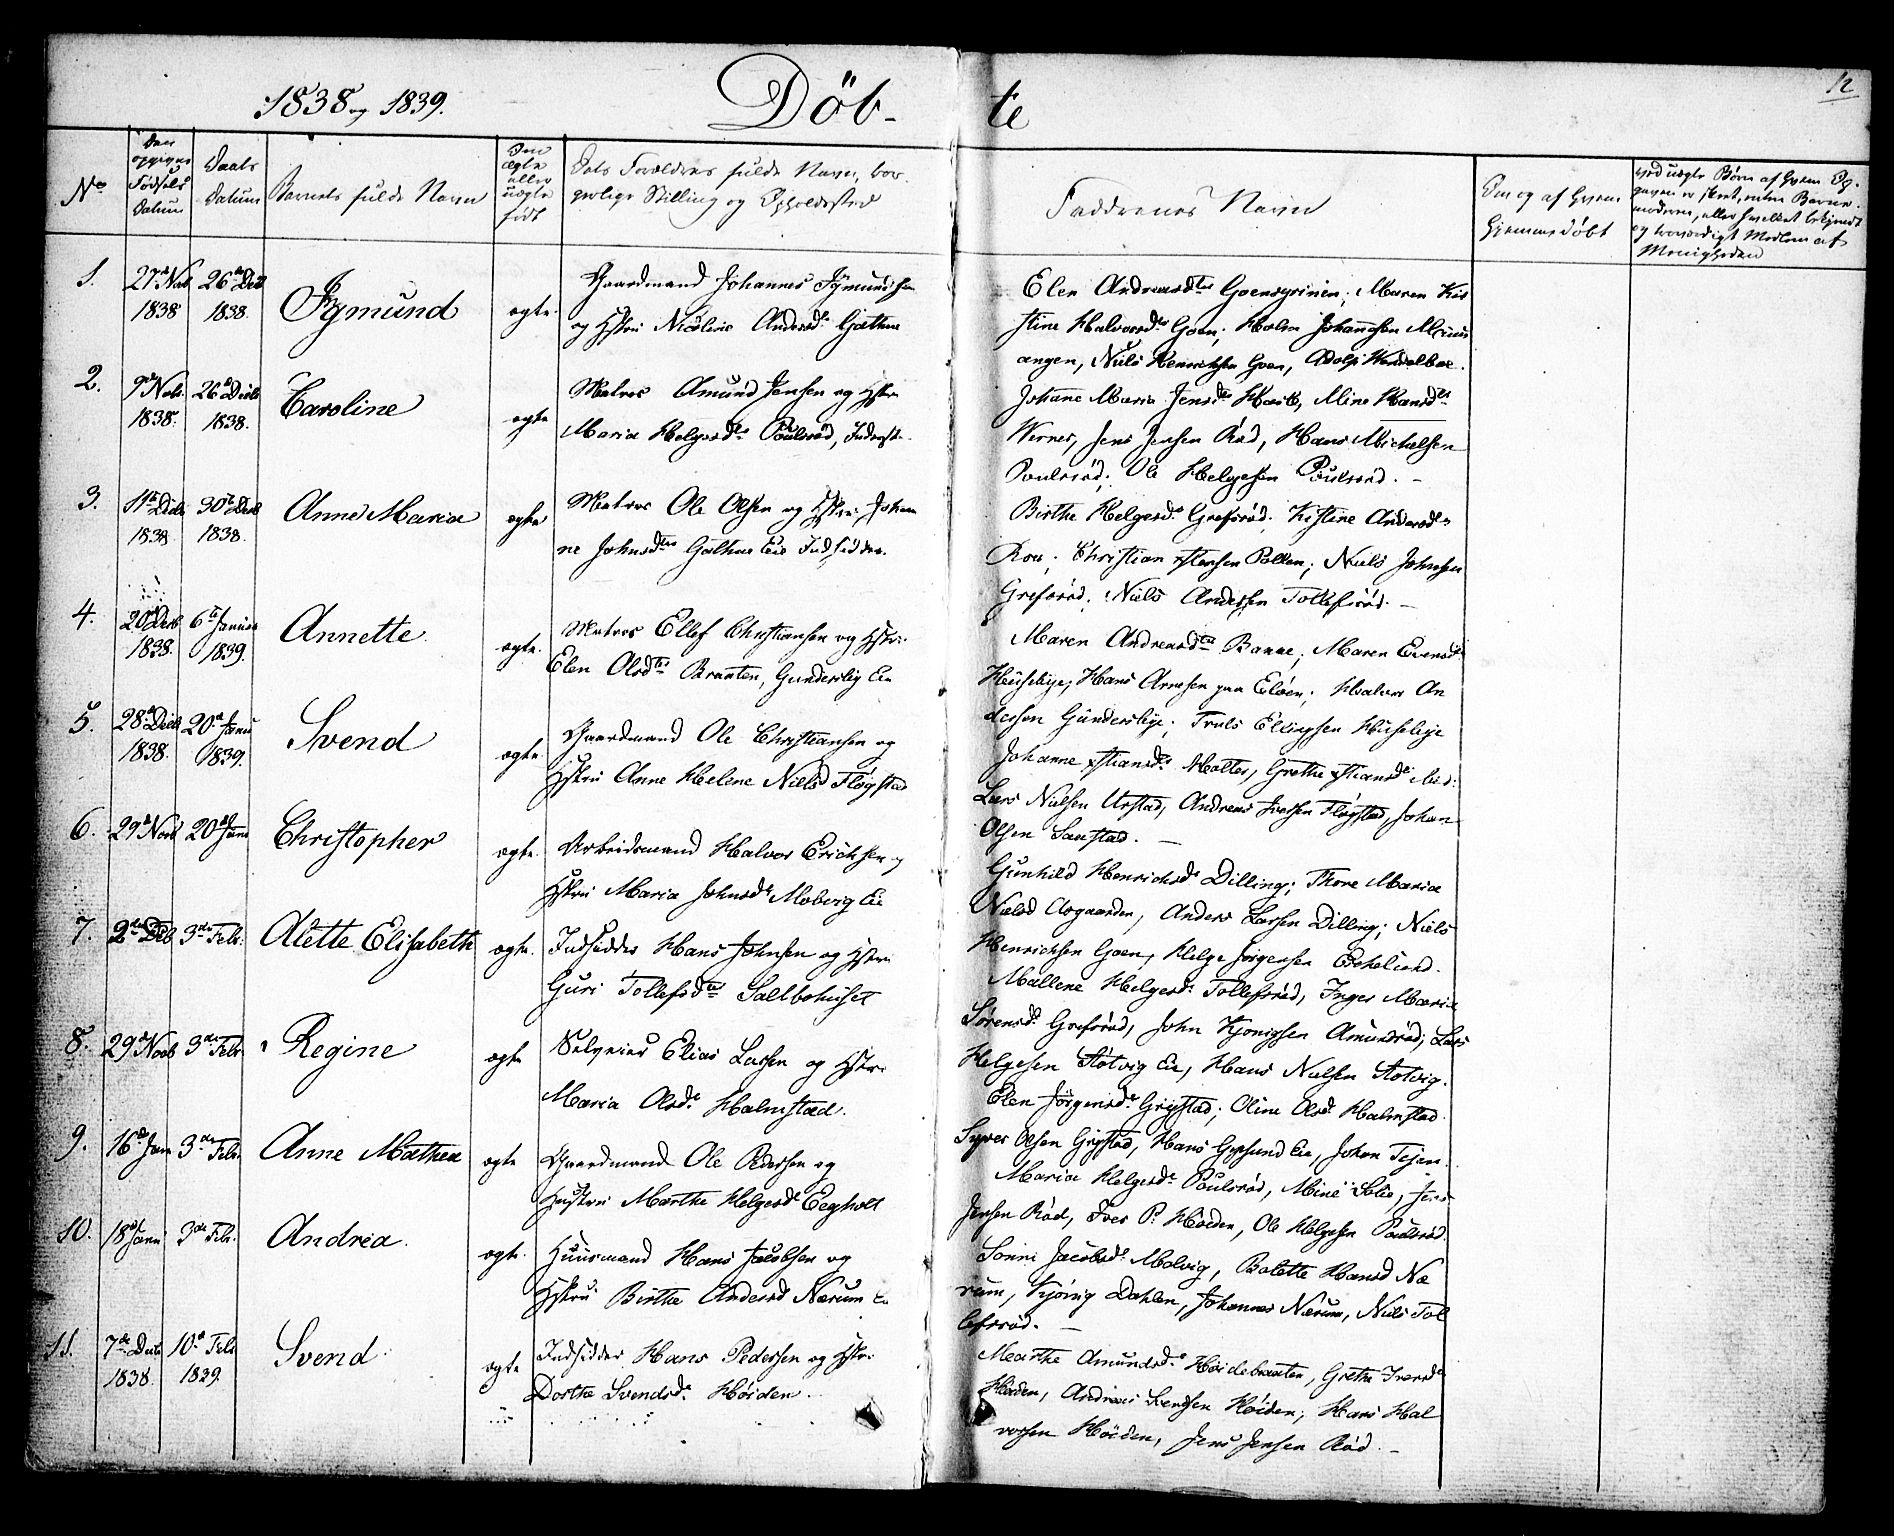 12
1838 og 1839. Döb- te
No
Den opgivne Födsels Datum
Daabs Datum
Barnets fulde Navn
Om ægte eller uægte født
Dets Forældres fulde Navn, bor-
gerlige Stilling og Opholdssted
Faddrenes Navn
Om og af hvem
Hjemmedöbt
ved uægte Börn af hvem Op-
given er skeet, enten Barne-
moderen, eller hvilket bekjendt
og troværdigt Medlem af
Menigheden
1. 27d Novb 1838 26de Decb 1838. Igmund ægte.
Gaardmand Johannes Igmundsen
og Hstru Nicoline Andersd. Gæthne
Elen Andreasdter Goensgrinien; Maren Kri
stine Halvorsdr Goen; Holm Johannesen
angen, Niels Henrichsen Goen, Adolf
2. 9de Novb. 1838. 26d Decb 1838. Caroline ægte
Matros Amund Jensen og Hstru
Maria Helgesdtr Poulsröd, Inderst.
Johane Maria Jensdr, Mine Hansdtr
Werner, Jens Jensen Röd, Hans Michelsen
Poulsröd; Ole Helgesen Poulsröd. -
3. 11te Decb 1838 30te Decb 1838. Anne Maria ægte
Matros Ole Olsen og Hstru Johan
ne Johnsdter Gæthne Eie Indsidder.
Birthe Helgesdr Grefsröd; Kistine Andersdr
Roer; Christian Pollen; Niels Johnsen
Grefsröd; Niels Andersen Tollefsröd. -
4. 20de Decb 1838. 6te Januar 1839. Annette ægte.
Matros Ellef Christiansen og Hstru
Elen Olsdtr Braaten, Gunderslig Eie
Maren Andreasdtr Banne; Maren Evensdr
Huseby; Hans Arnesen paa Elöen; Halvor An
dersen Gunderslye; Truls Ellingsen Husebye
5. 28d Decb 1838. 20d Janu 1839. Svend ægte
Gaardmand Ole Christiansen og
Hstru Anne Helene Nielsd Flögstad
Johanne Xstiansdr Molter, Grethe Xstiansdr ibid:
Lars Nielsen Urstad, Andreas Iversen Flögstad, Johan
Olsen Saustad. -
6. 29d Novb 20d Janu Christopher ægte.
Arbeidsmand Halvor Erichsen og
Hstru Maria Johnsdr Moberg Eie
Gunhild Henrichsdr Dilling; Thore Maria
Nielsd Aasgaarden, Anders Larsen Dilling; Niels
Henrichsen Goen, Helge Jörgensen Ekelund.
7. 2den Decb 3die Febr. Alette Elisabeth ægte.
Indsidder Hans Johnsen og Hstru
Guri Tollefsdter Saltbohuset
Mallene Helgesdr Tollefsröd, Inger Maria
Sörensdr Grefsröd, John Kjönigsen Amundröd; Lars
Helgesen Støtvig Eie, Hans Nielsen Støtvig.
8. 29d Novb 3die Febr Regine ægte
Selveier Elias Larsen og Hstru
Maria Olsdr Halmstad.
Elen Jörgensdr Gripstad; Oline Olsd Halmstad.
Syver Olsen Gripstad, Hans Gypsund Eie, Johan
9. 16d Jan 3die Febr. Anne Mathea ægte
Gaardmand Ole Pedersen og
Hustru Marthe Helgesdr Eegholt
Maria Helgesdr Poulsröd, Mine Lslie, Jens
Jensen Röd, Iver P. Höiden, Ole Helgesen Poulsröd.
10. 18d Janu 3die Febr. Andrea. ægte.
Huusmand Hans Jacobsen og
Hstru Birthe Andersd Nærum Eie
Sönni Jacobsdr Molvig, Bolette Hansd Næ
rum, Kjönig Dahlen, Johannes Nærum, Niels Tol
lefsröd. -
11. 7de Decb 1838. 10d Feb 1839. Svend ægte
Indsidder Hans Pedersen og Hstru
Dorthe Svendsdr Höiden.
Marthe Amundsdr Höidebraaten, Grethe Iversdr
Höiden, Andreas Svendsen Höiden; Hans Hal
vorsen Höiden, Jens Jensen Röd. -